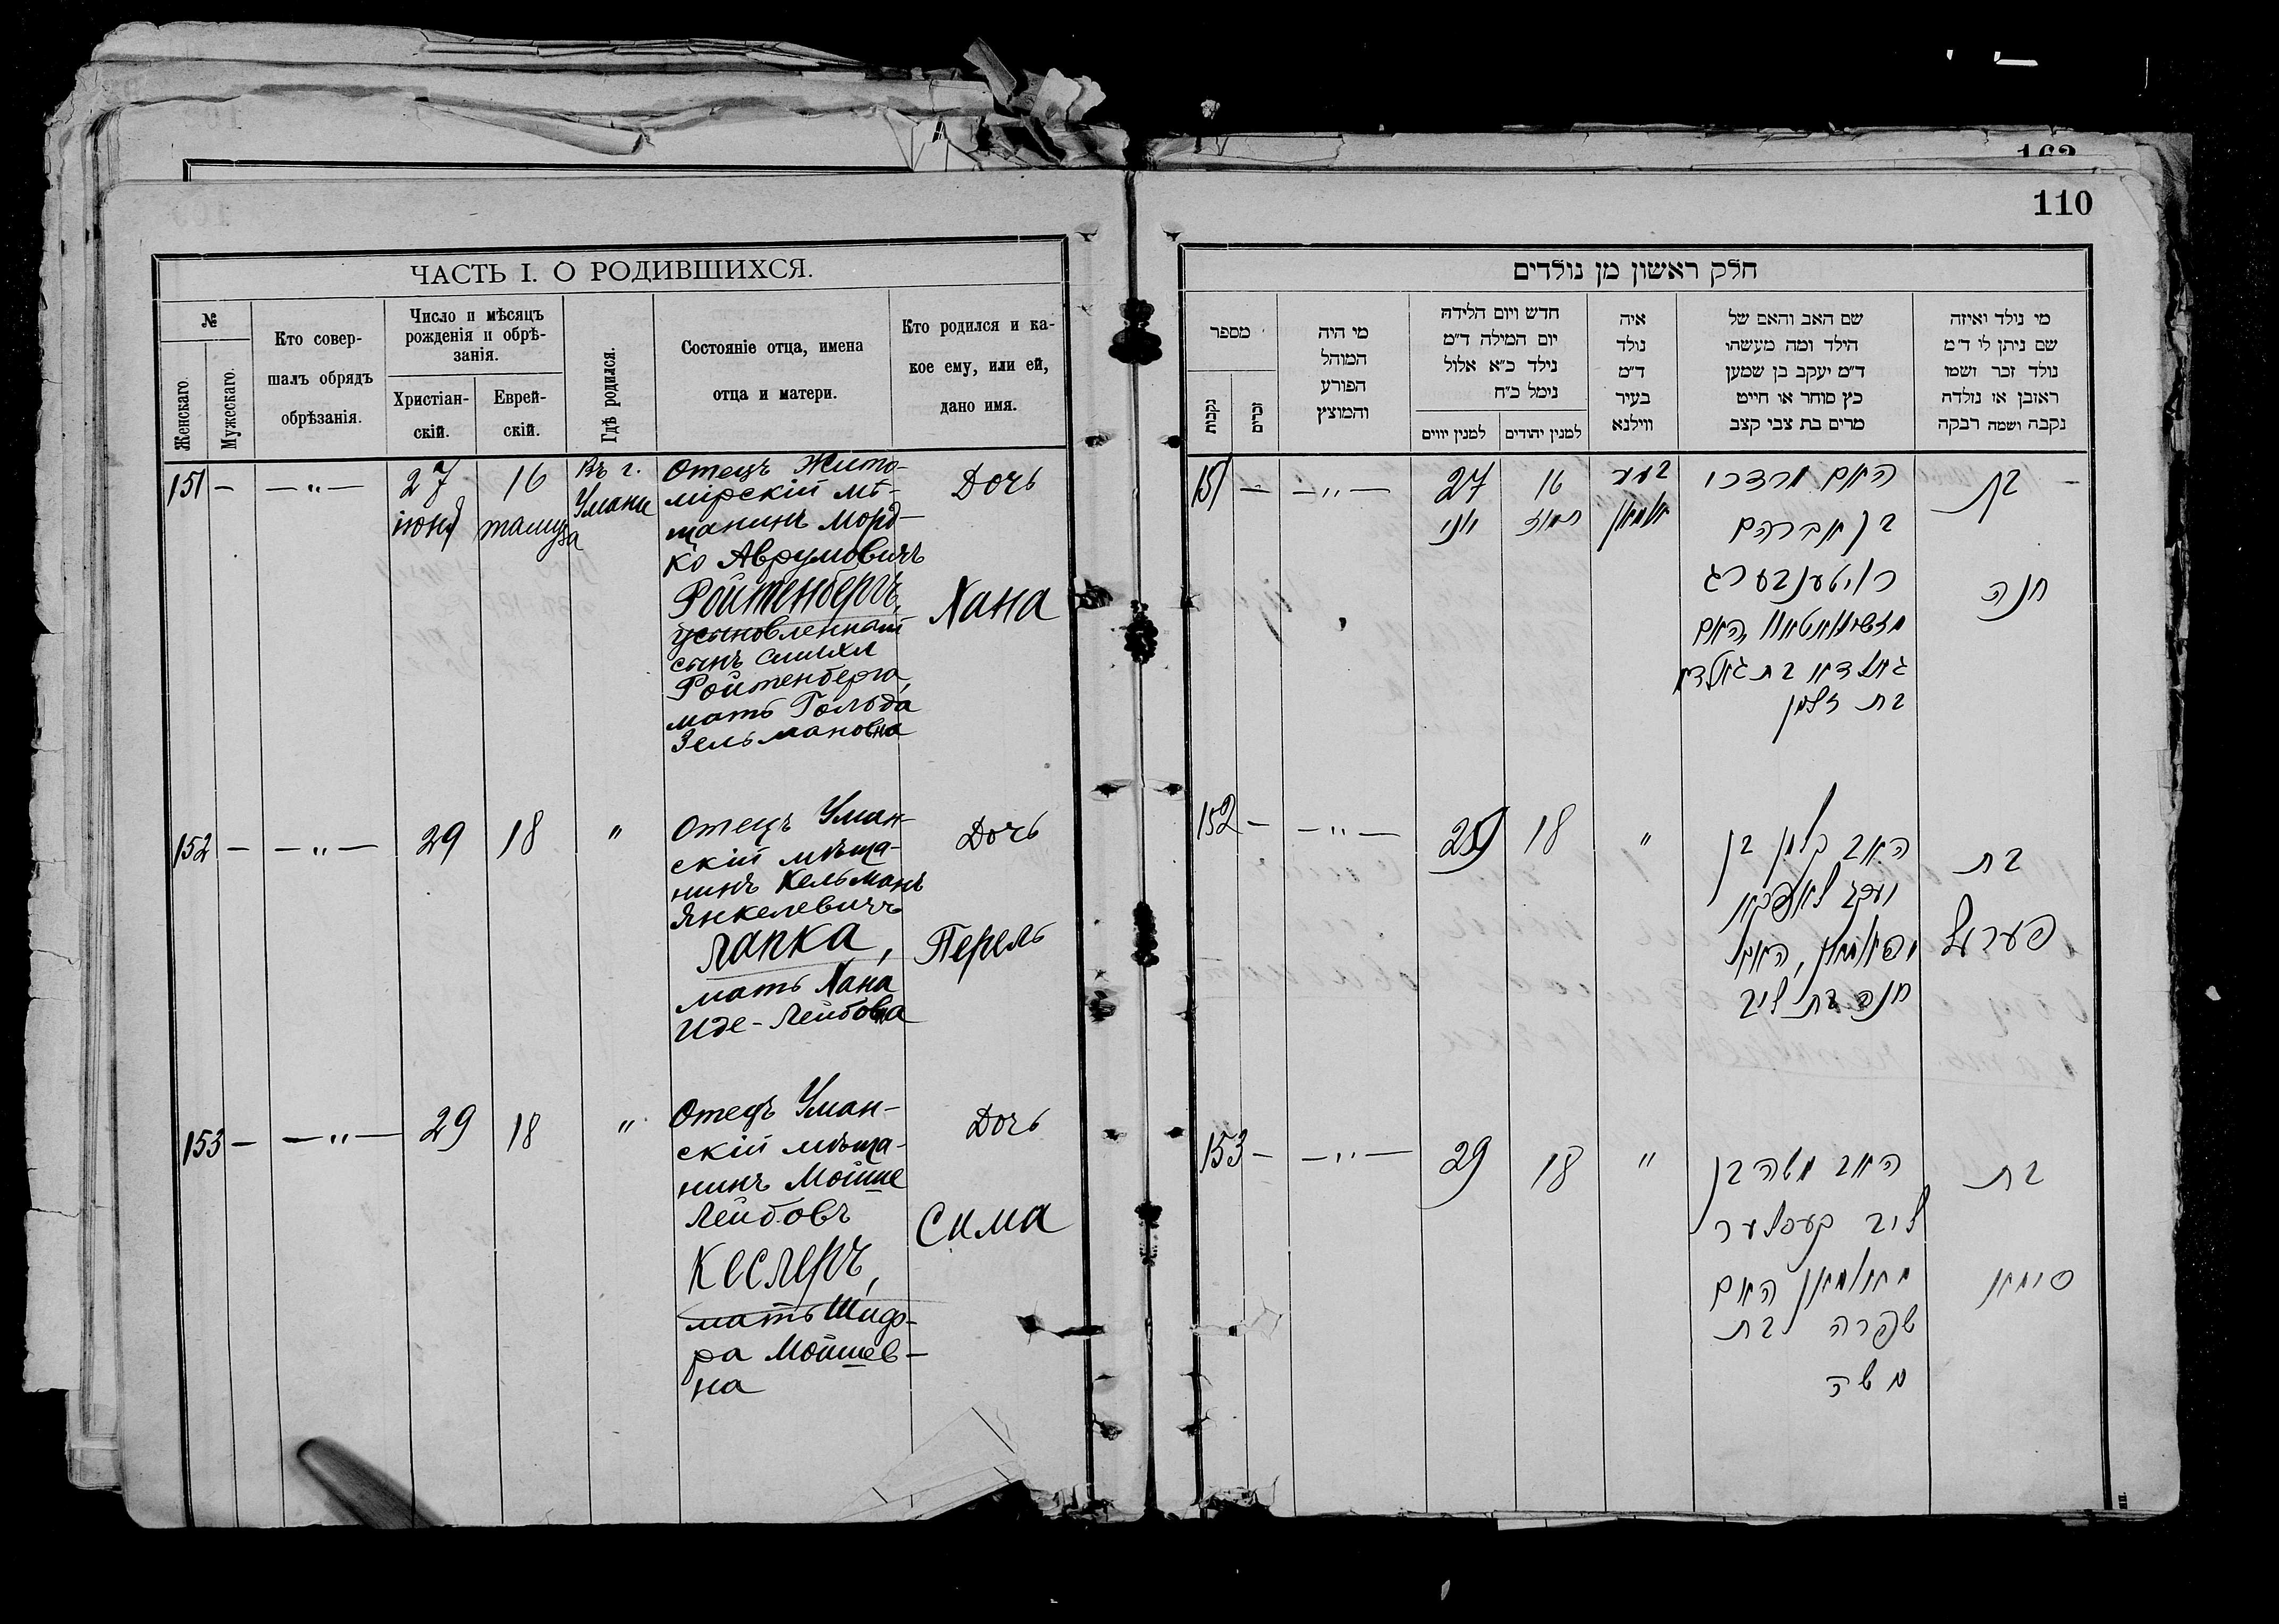 ЧАСТЬ I. О РОДИВШИХСЯ.
№
Женскаго.
Мужескаго.
Кто совер-
шалъ обрядъ
обрѣзанія.
Число и мѣсяцъ
рожденія и обрѣ-
занія.
Христіан-
скій.
Еврей-
скій.
Гдѣ родился.
Состояніе отца, имена
отца и матери.
Кто родился и ка-
кое ему, или ей,
дано имя.
151 — — „ —
27
іюня
16
тамуза
Въ г.
Умани
Отецъ Жито-
мірскій мѣ-
щанинъ Морд-
ко Аврумовичъ
Ройтенбергъ,
усыновленный
сынъ
Ройтенберга,
мать Гольда
Зельмановна
Дочь
Хана
152 — — „ —
29
18
"
Отецъ Уман-
скій мѣща-
нинъ Кельманъ
Янкелевичъ
Лапка,
мать Хана
Иде-Лейбовна
Дочь
Перель
153 — — „ —
29
18
"
Отецъ Уман-
скій мѣща-
нинъ Мойше
Лейбовъ
Кеслеръ,
мать Шиф-
ра Мойшев-
на
Дочь
Сима
162
110
חלק ראשון מן נולדים
מספר
נקבות
זכרים
מי היה
המוהל
הפורע
והמוצץ
חדש ויום הלידה
יום המילה ד"מ
נילד כ"א אלול
נימל כ"ח
למנין יווים
למנין יהודים
איה
נולד
ד"מ
בעיר
ווילנא
שם האב והאם של
הילד ומה מעשהו
ד"מ יעקב בן שמען
כץ סוחר או חייט
מרים בת צבי קצב
מי נולד ואיזה
שם ניתן לו ד"מ
נולד זכר ושמו
ראובן או נולדה
נקבה ושמה רבקה
151 — — „ —
27
יוני
16
תמוז
בעיר
אומאן
מרדכי
בן אברהם
רויטענבערג
גאלדא בת
בת זלמן
בת
חנה
152 — — „ —
29
18
"
האב קלמן בן
יעקב לאפקא
חנה בת ליב
בת
פערל
153 — — „ —
29
18
"
האב משה בן
ליב קעסלער
מאומאן האם
שפרה בת
משה
בת
סימא